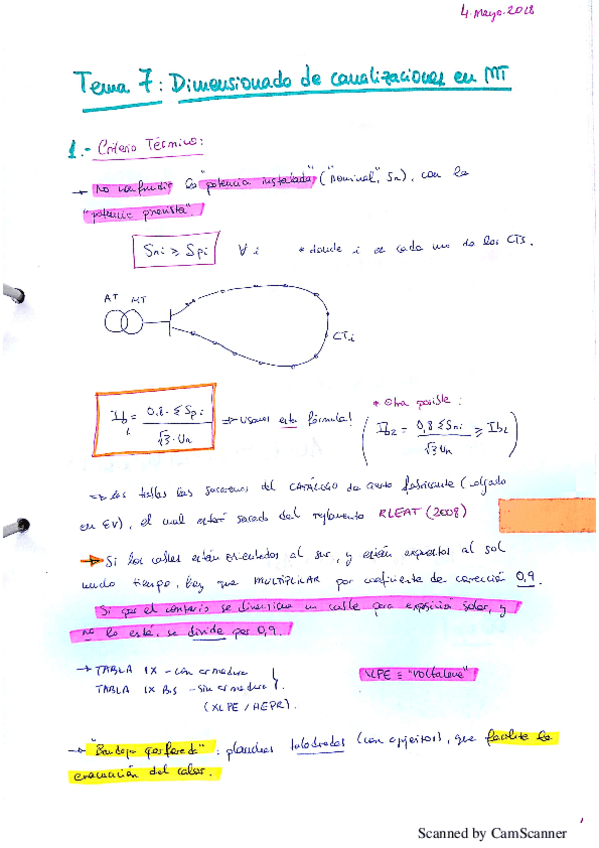 4. Mayo. 2018
Tema 7: Dimensionado de canalizaciones en MT
1.- Criterio Térmico:
→ No confundir la "potencia instalada" ("nominal", Sn), con la
"potencia prevista".
Sni ≥ Spi ∀i * donde i es cada uno de los CTs.
AT MT
CTi
Ib1 = 0,8 · ΣSpi / √3 · Un ⇒ usamos esta fórmula!
* Otra posible:
(Ib2 = 0,8 ΣSni / √3 Un ≥ Ib1)
las tablas las sacaremos del CATÁLOGO de cierto fabricante (colgado
en EV), el cual estará sacado del reglamento RLEAT (2008)
→ Si los cables están orientados al sur, y están expuestos al sol
mucho tiempo, hay que MULTIPLICAR por coeficiente de corrección 0,9.
Si por el contrario se dimensiona un cable para exposición solar, y
no lo está, se divide por 0,9.
→ TABLA IX - con armadura
TABLA IX Bis - sin armadura
(XLPE / HEPR).
XLPE ≡ "Voltalene"
→ "Bandeja perforada": planchas (con agujeritos), que facilita la
evacuación del calor.
Scanned by CamScanner